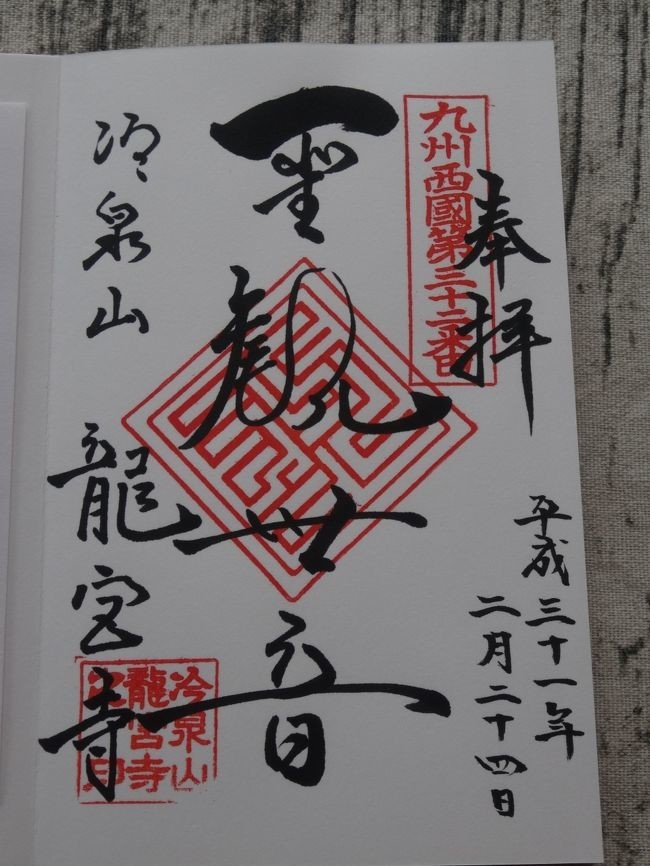 奉拝
九州西國第三十二番
平成三十一年
二月二十四日
聖観世音
冷泉山
龍宮寺
冷泉山
龍宮寺